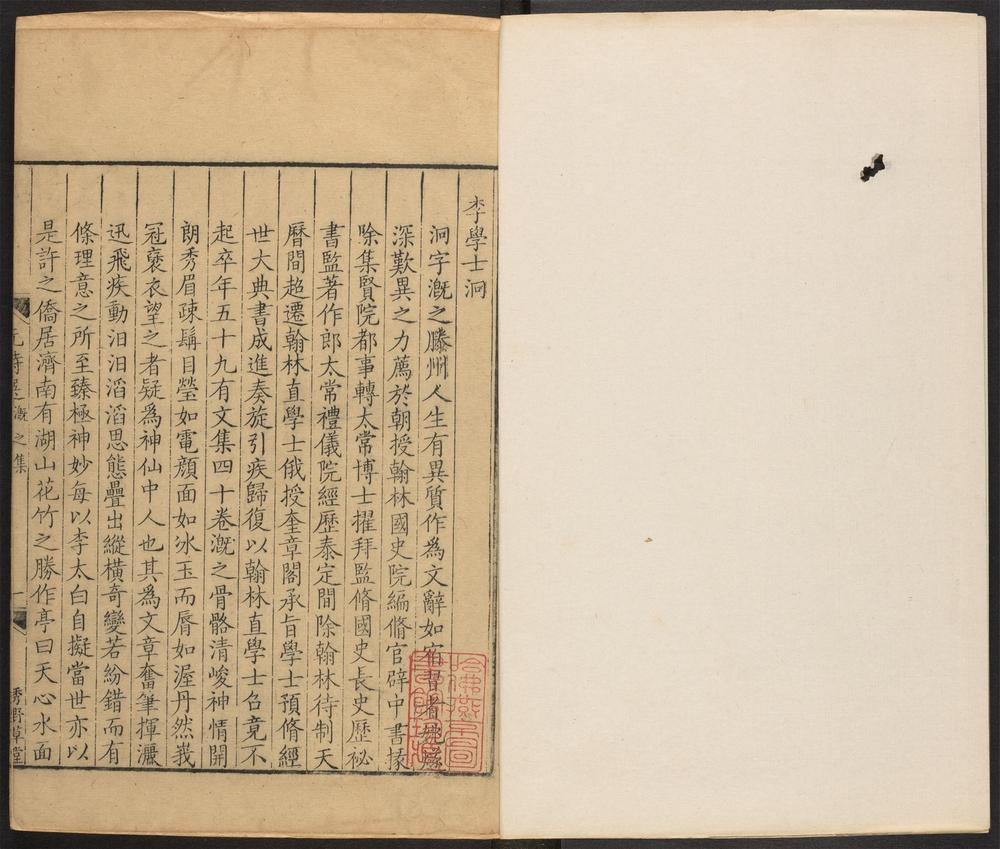 李學士泂
泂字溉之滕州人生有異質作為文辭如宿習者姚燧
深歎異之力薦於朝授翰林國史院編脩官辟中書掾
除集賢院都事轉太常博士擢拜監脩國史長史歷祕
書監著作郎太常禮儀院經歷泰定間除翰林待制天
曆間超遷翰林直學士俄授奎章閣承旨學士預脩經
世大典書成進奏旋引疾歸復以翰林直學士召竟不
起卒年五十九有文集四十卷溉之骨骼清峻神情開
朗秀眉疎髯目瑩如電顏面如冰玉而脣如渥丹然峩
冠褒衣望之者疑為神仙中人也其為文章奮筆揮灑
迅飛疾動汨汨滔滔思態疊出縱橫奇變若紛錯而有
條理意之所至臻極神妙每以李太白自擬當世亦以
是許之僑居濟南有湖山花竹之勝作亭曰天心水面
元詩選 溉之集 一 秀野草堂
哈佛燕京圖書館珍藏